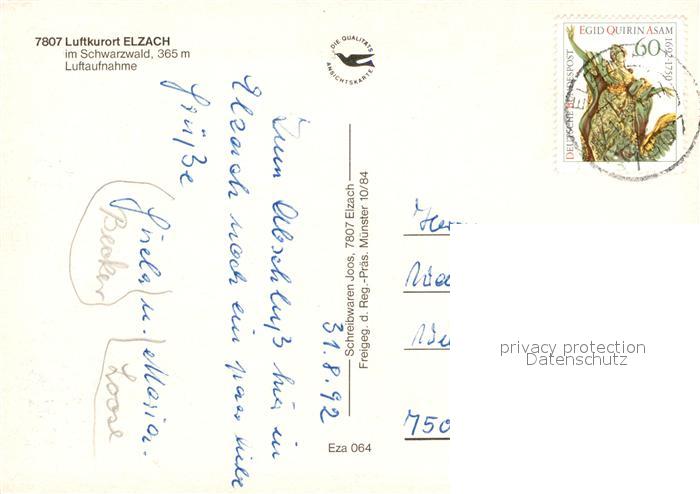 7807 Luftkurort ELZACH
im Schwarzwald, 365 m
Luftaufnahme
DIE QUALITÄTS
ANSICHTSKARTE
EGID QUIRIN ASAM
1692-1750
60
DEUTSCHE BUNDESPOST
31.8.92
Zum Abschluß hier in
Elzach noch ein paar liebe
Grüße
Gisela u. Maria.
Becker
Loose
Schreibwaren Joos, 7807 Elzach
Freigeg. d. Reg.-Präs. Münster 10/84
Eza 064
750
privacy protection
Datenschutz